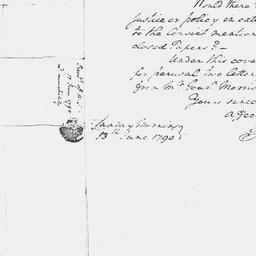 Would there
justice or policy in exte
to the Convict mention
closed Papers? —
Under this cove
for perusal two letter
from Mr. Gouv. Morris
Yours since
affec
Sunday Morning
13th June 1790
13 June 1790